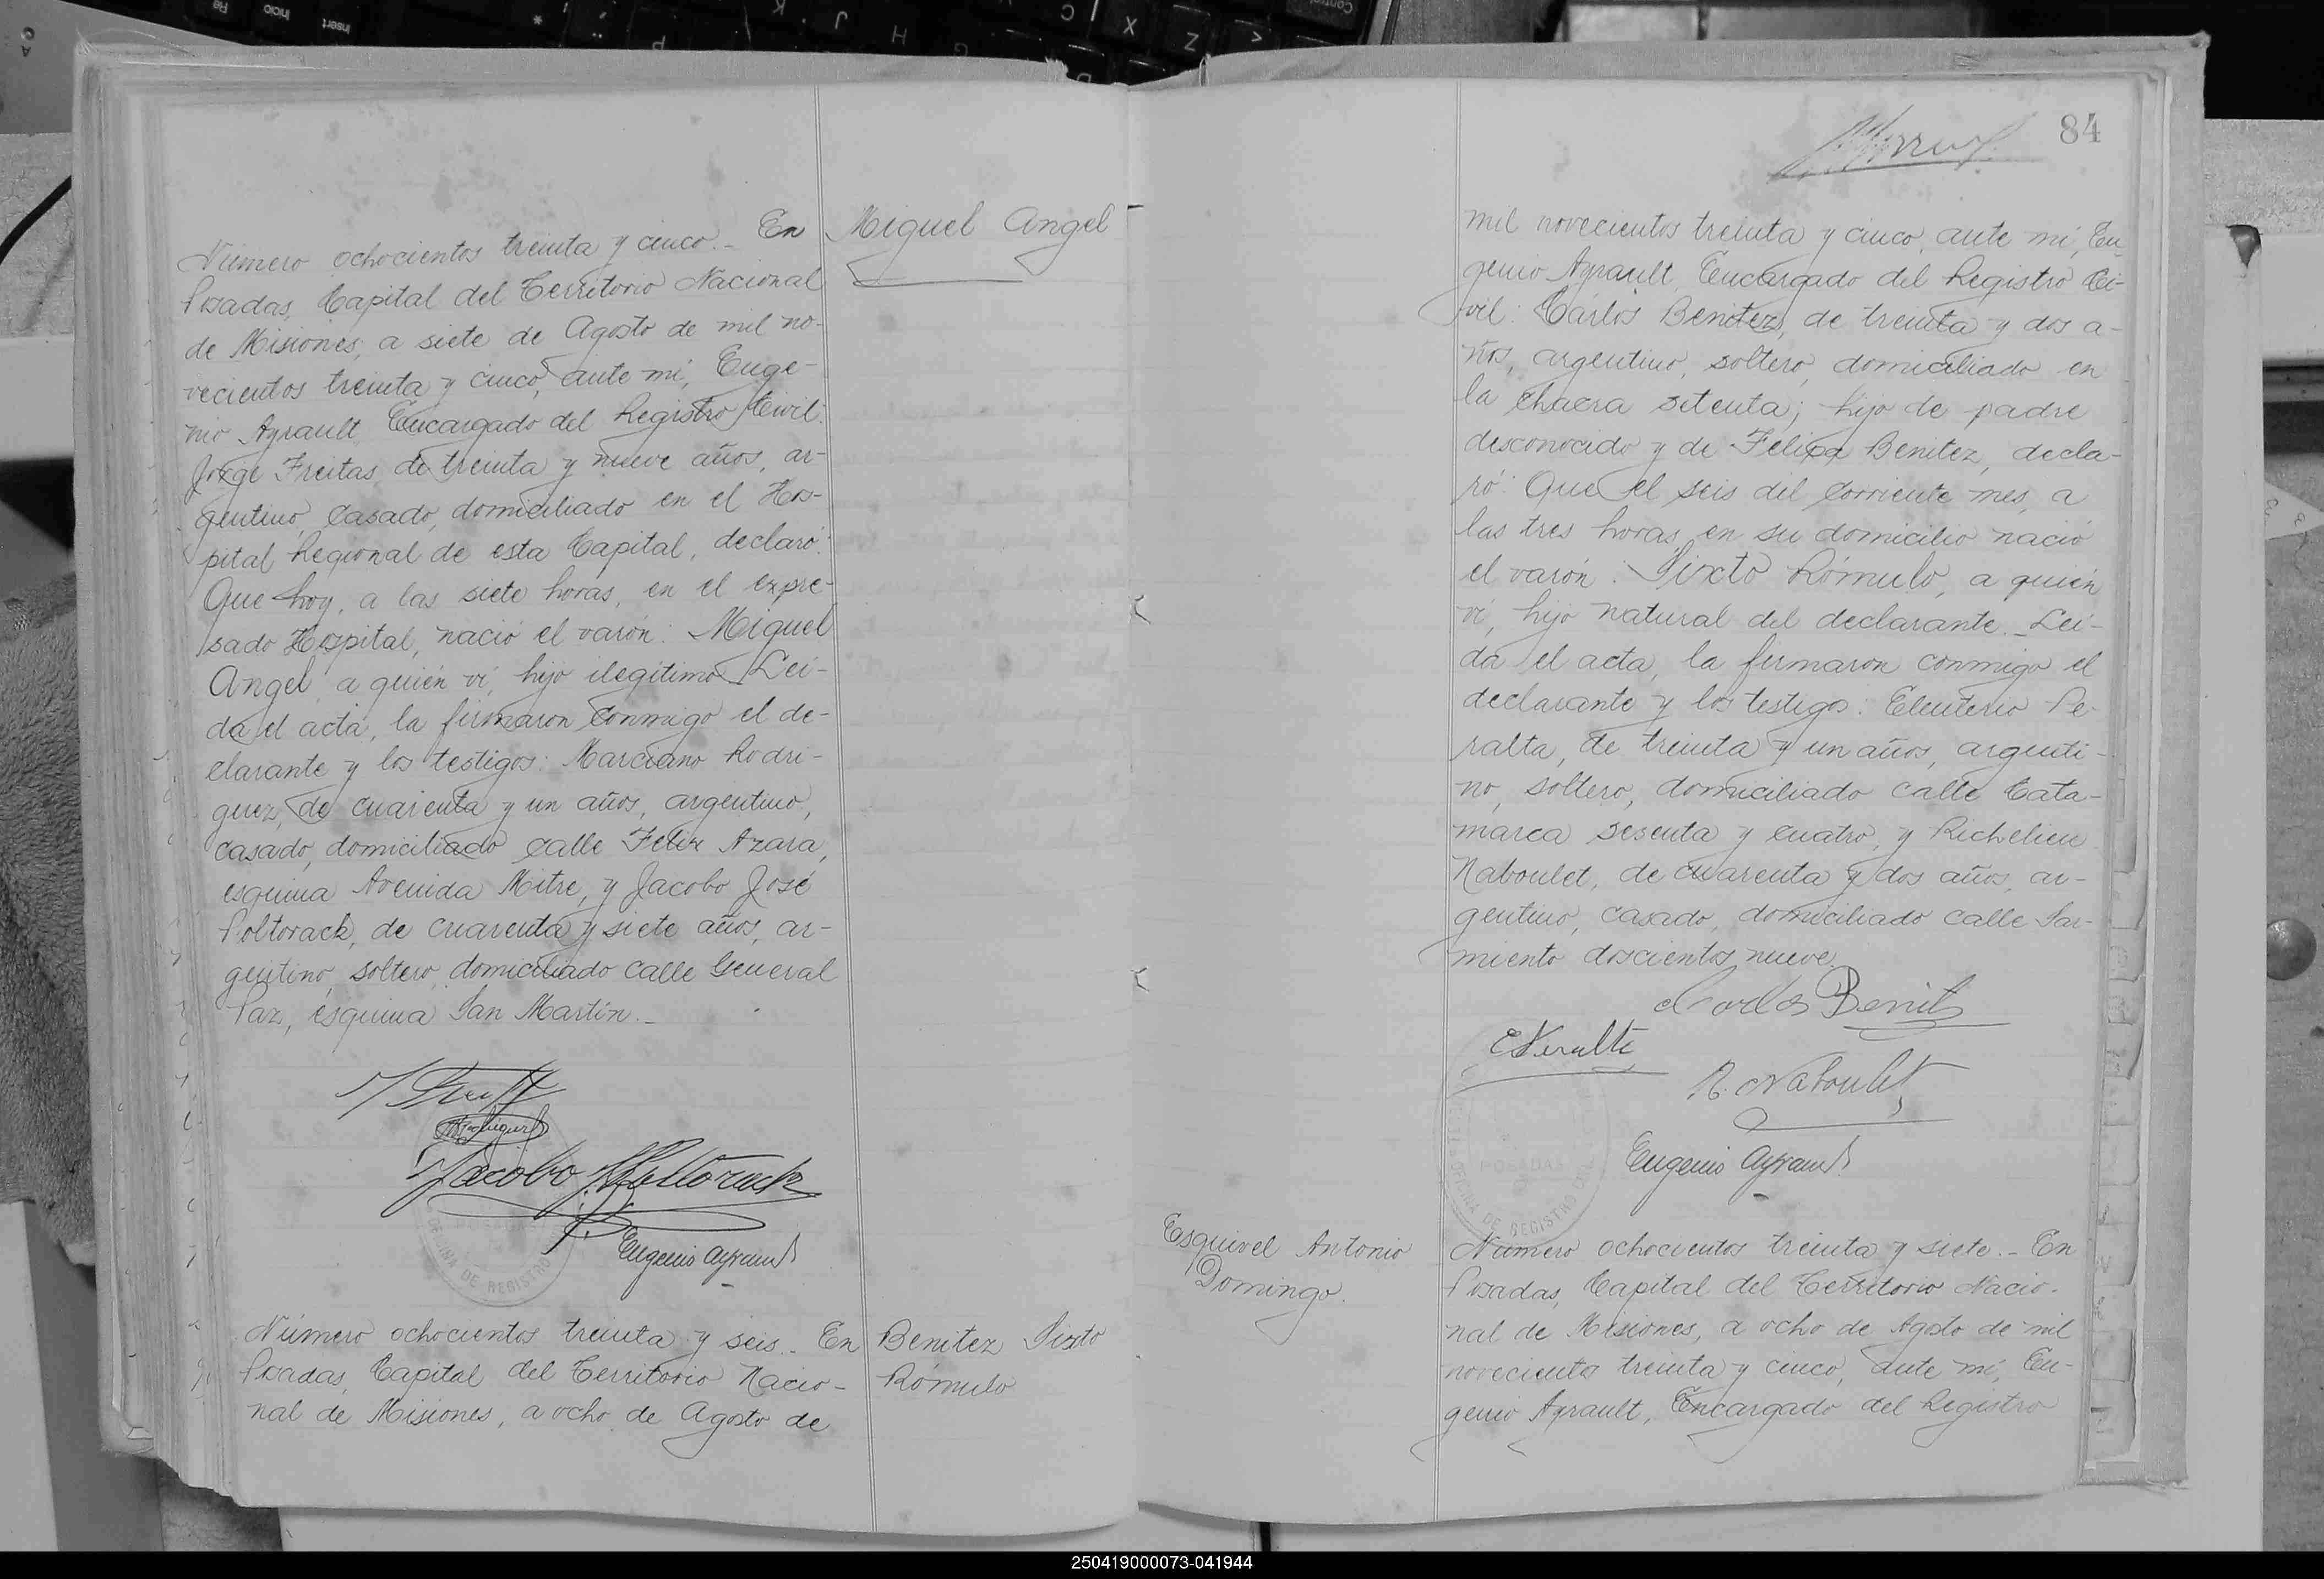 Número ochocientos treinta y cinco._ En
Posadas, Capital del Territorio Nacional
de Misiones, a siete de Agosto de mil no-
vecientos treinta y cinco, ante mí, Euge-
nio Ayrault, Encargado del Registro Civil:
Jorge Freitas, de treinta y nueve años, ar-
gentino, casado, domiciliado en el Hos-
pital Regional de esta Capital, declaró:
Que hoy, a las siete horas, en el expre-
sado Hospital, nació el varón: Miguel
Angel, a quién ví, hijo ilegítimo._ Leí-
da el acta, la firmaron conmigo el de-
clarante y los testigos: Marciano Rodri-
guez, de cuarenta y un años, argentino,
casado, domiciliado calle Felix Azara,
esquina Avenida Mitre, y Jacobo José
Poltorack, de cuarenta y siete años, ar-
gentino, soltero, domiciliado calle General
Paz, esquina San Martín._
Miguel Angel
Jacobo J Poltorack
Eugenio Ayrault
OFICINA DE REGISTRO
Número ochocientos treinta y seis._ En
Posadas, Capital del Territorio Nacio-
nal de Misiones, a ocho de Agosto de
Benitez Sixto
Rómulo
84
mil novecientos treinta y cinco, ante mí, Eu-
genio Ayrault, Encargado del Registro Ci-
vil: Cárlos Benitez, de treinta y dos a-
ños, argentino, soltero, domiciliado en
la chacra setenta; hijo de padre
desconocido y de Felipa Benitez, decla-
ró: Que el seis del corriente mes, a
las tres horas, en su domicilio nació
el varón: Sixto Rómulo, a quién
ví, hijo natural del declarante._ Leí-
da el acta, la firmaron conmigo el
declarante y los testigos: Eleuterio Pe-
ralta, de treinta y un años, argenti-
no, soltero, domiciliado calle Cata-
marca sesenta y cuatro, y Richelieu
Naboulet, de cuarenta y dos años, ar-
gentino, casado, domiciliado calle Sar-
miento doscientos nueve
Carlos Benitz
E Peralta
R. Naboulet
Eugenio Ayrault
POSADAS
OFICINA DE REGISTRO CIVIL
Esquivel Antonio
Domingo.
Número ochocientos treinta y siete._ En
Posadas, Capital del Territorio Nacio-
nal de Misiones, a ocho de Agosto de mil
novecientos treinta y cinco, ante mí, Eu-
genio Ayrault, Encargado del Registro
250419000073-041944